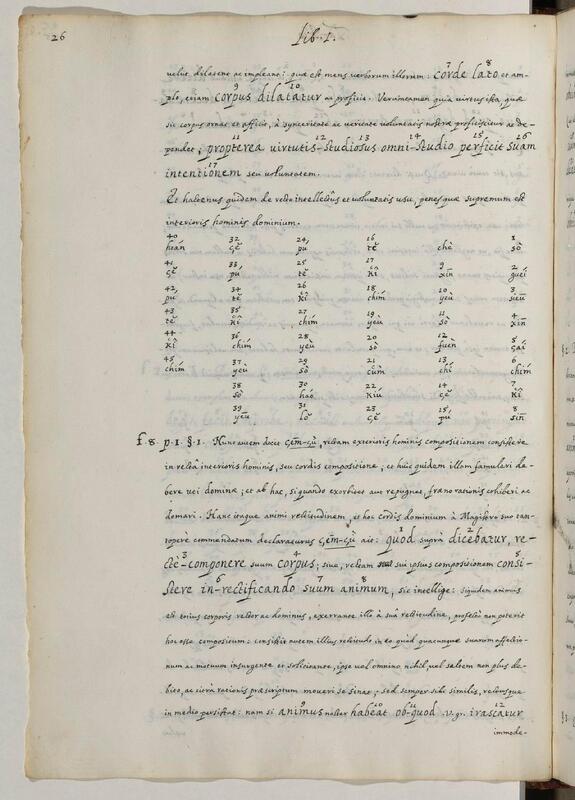 26 Lib. I.
velut dilatent ac impleant: quæ est mens verborum illorum: 7 corde 8 lato et am-
plo, etiam 9 corpus 10 dilatatur ac proficit. Verumtamen quia virtus ista, quæ
sic corpus ornat et afficit, à synceritate ac veritate voluntatis nostræ proficiscitur ac de-
pendet; 11 propterea 12 virtutis-13 studiosus 14 omni-studio 15 perficit 16 suam
17 intentionem seu voluntatem.
Et hactenus quidem de recto intellectûs et voluntatis usu, penes quæ supremum est
interioris hominis dominium.
40 32 24 16 1
hoán çĕ pŭ tĕ chè sò
41 33 25 17 9 2
çĕ pŭ tĕ kî xīn guéi
42 34 26 18 10 3
pŭ tĕ kî chím yeù sieū
43 35 27 19 11 4
tĕ kî chím yeù sò xīn
44 36 28 20 12 5
kî chím yeù sò fuèn çái
45 37 29 21 13 6
chím yeù sò cùm chí chím
38 30 22 14 7
sò háo kiú çĕ kî
39 31 23 15 8
yeū lŏ çĕ pŭ sīn
f. 8. p. 1. §. 1. Nunc autem docet çēm-çù, rectam exterioris hominis compositionem consistere
in rectâ interioris hominis, seu cordis compositione; et huic quidem illam famulari de-
bere uti dominæ; et ab hac, siquando exorbitet aut repugnet, fræno rationis cohiberi ac
domari. Hanc itaque animi rectitudinem, et hoc cordis dominium à Magistro suo tan-
topere commendatum declaraturus çēm-çù ait: 1 quod suprà 2 dicebatur, re-
ctè-3 componere suum 4 corpus; sive, rectam sui ipsius compositionem 5 consi-
stere in-6 rectificando 7 suum 8 animum, sic intellige: siquidem animus
est totius corporis rector ac dominus, exerrante illo à suâ rectitudine, profectò non poterit
hoc esse compositum: consistit autem illius rectitudo in eo quòd quacunque suarum affectio-
num ac motuum insurgente et solicitante, ipse vel omnino nihil, vel saltem non plus de-
bito, ac citrà rationis præscriptum moveri se sinat; sed semper sibi similis, rectusque
in medio persistat: nam si 9 animus noster 10 habeat 11 ob-quod v. gr. 12 irascatur
immode-